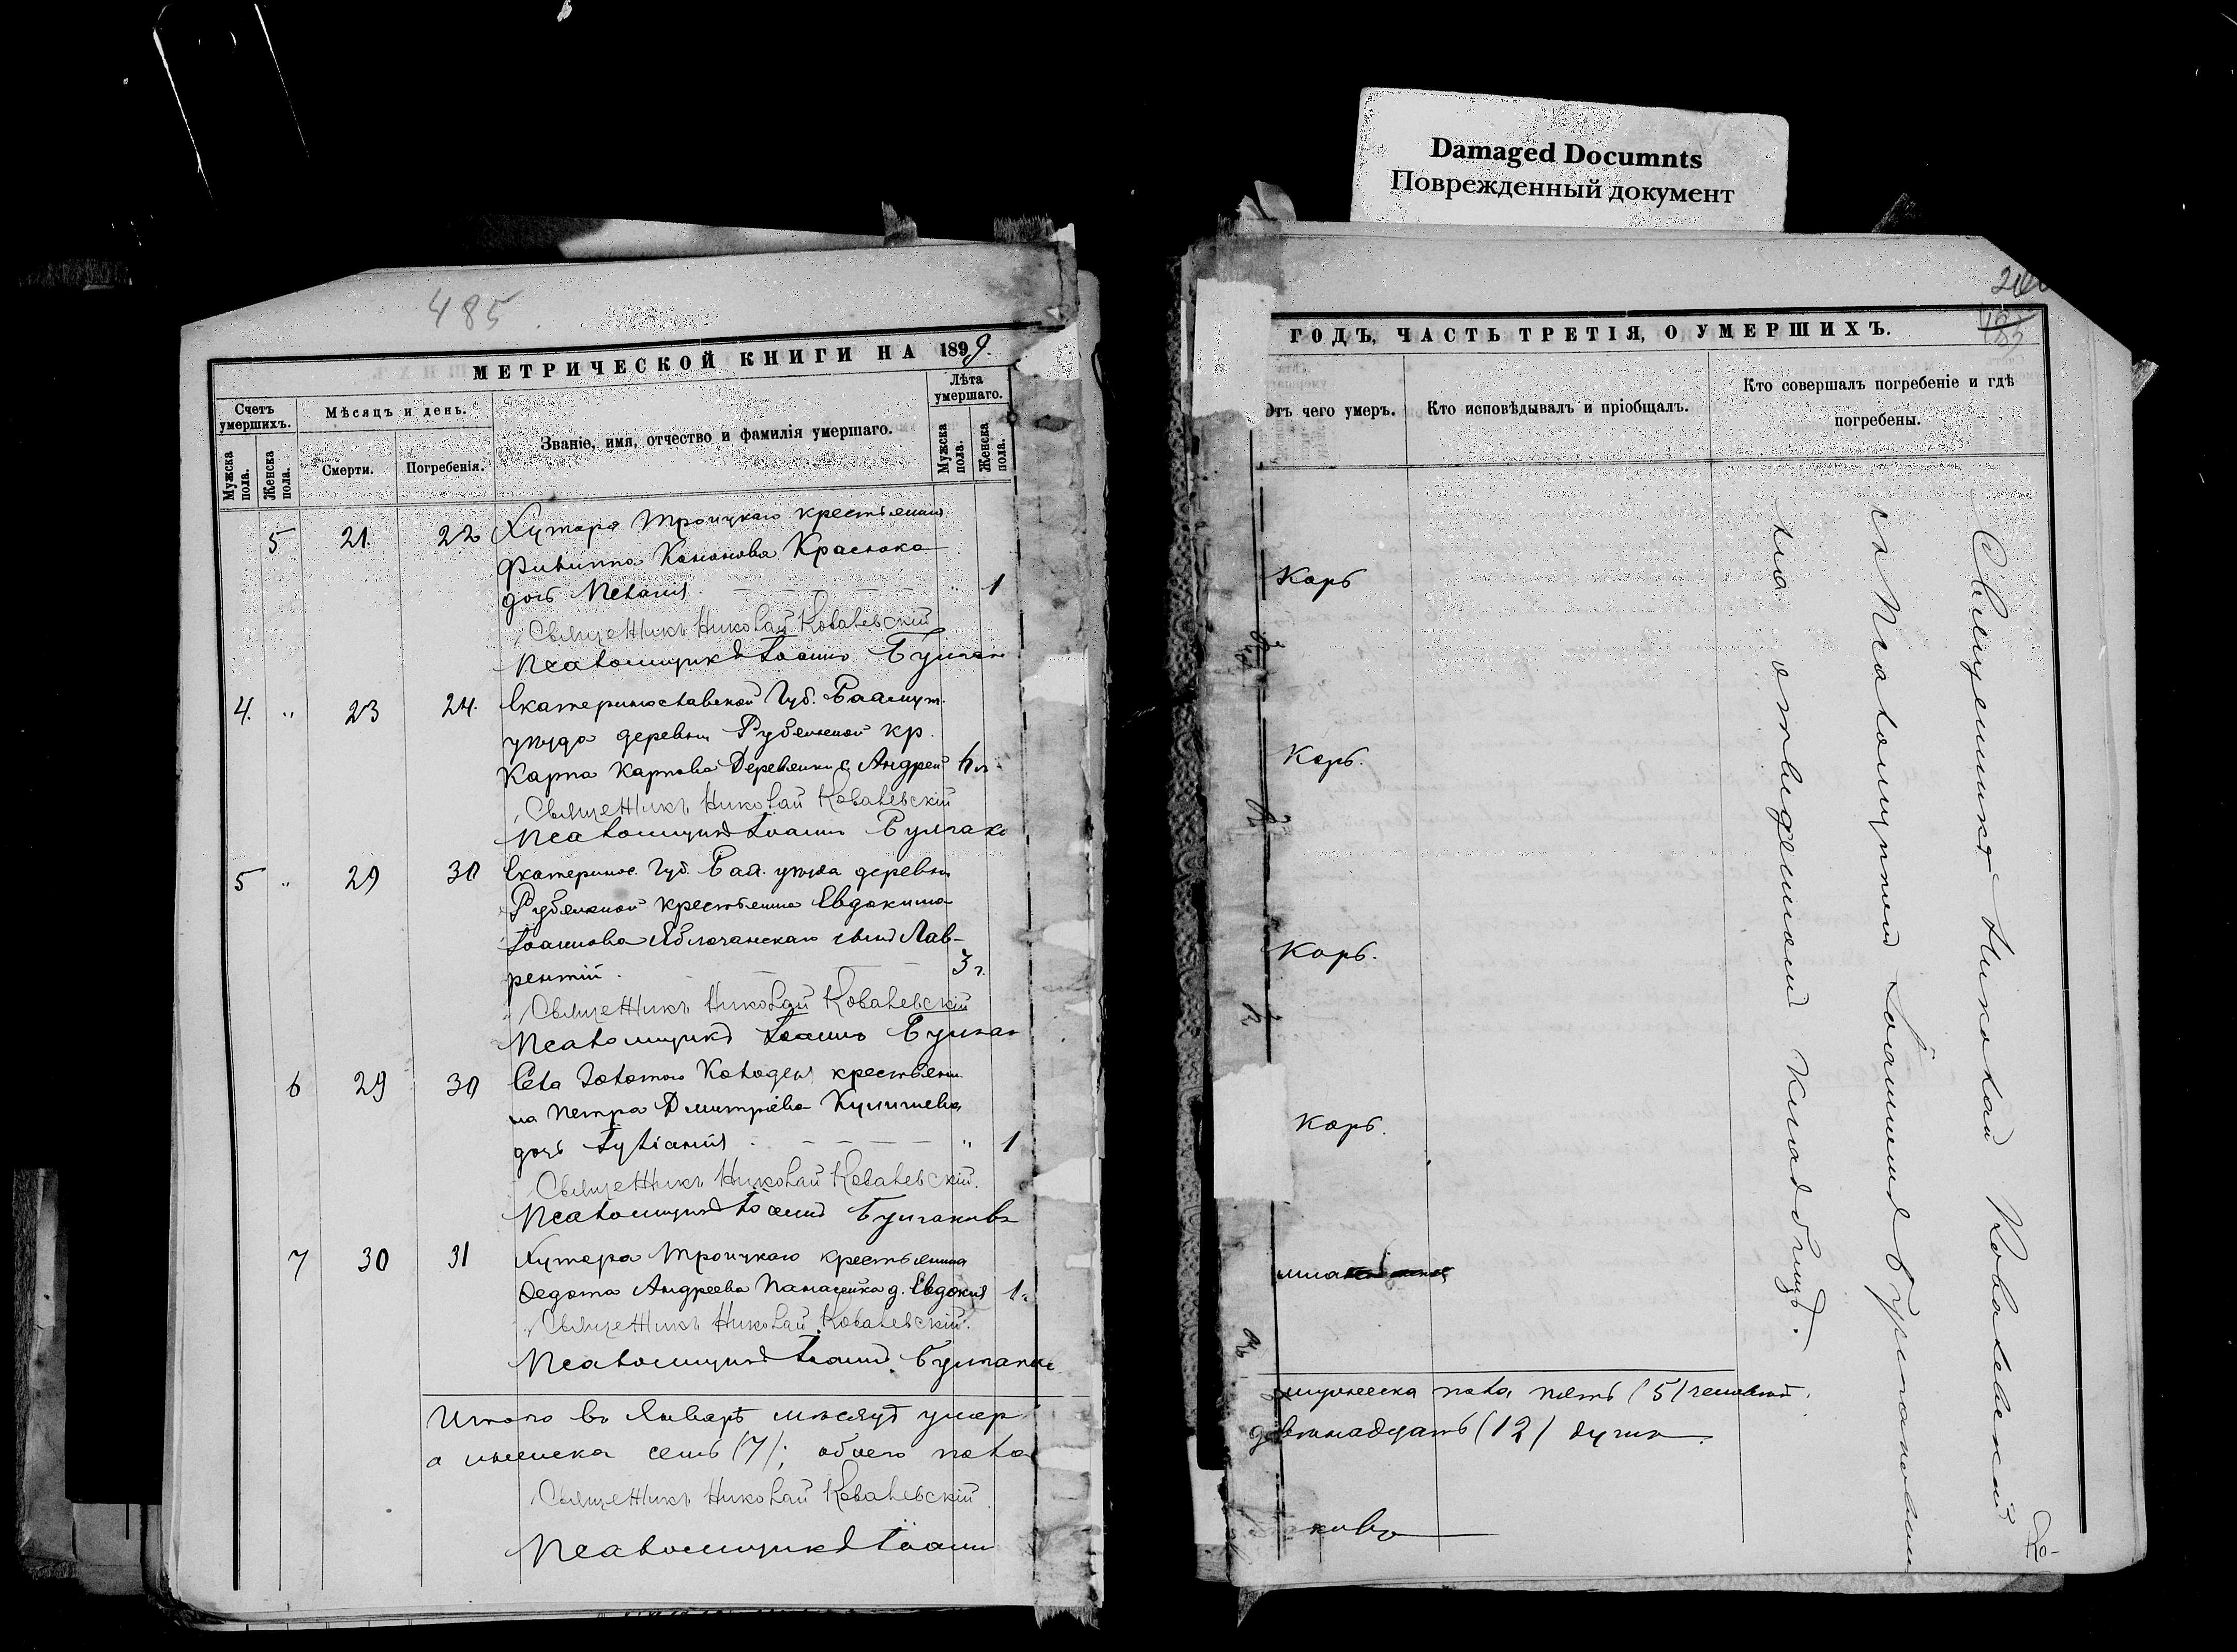 Damaged Documnts
Поврежденный документ
485
МЕТРИЧЕСКОЙ КНИГИ НА 1899.
Счетъ умершихъ.
Мѣсяцъ и день.
Званіе, имя, отчество и фамилія умершаго.
Лѣта умершаго.
Мужска пола.
Женска пола.
Смерти.
Погребенія.
Мужска пола.
Женска пола.
5 21. 22 Хутора Троицкаго крестьянина
Филиппа Кононова Краснока
дочь Меланія. " 1
Священникъ Николай Ковалевскій
Псаломщикъ Іоаннъ Булгак
4. " 23 24. Екатеринославской Губ. Бахмут.
уѣзда деревни Рубежной кр.
Карпа Карпова Деревянки с. Андрей
Священникъ Николай Ковалевскій
Псаломщикъ Іоаннъ Булгако
5 " 29 30 Екатеринос. Губ. Бах. уѣзда деревни
Рубежной крестьянина Евдокима
Іоаннова Яблочанскаго сынъ Лав-
рентій. 3 г.
Священникъ Николай Ковалевскій
Псаломщикъ Іоаннъ Булгак
6 29 30 Села Золотого Колодезя крестьяни
на Петра Димитріева
дочь Іуліанія " 1
Священникъ Николай Ковалевскій.
Псаломщикъ Іоаннъ Булгаковъ
7 30 31 Хутора Троицкаго крестьянина
Ѳедота Андреева Панасейка д. Евдокія 1 г.
Священникъ Николай Ковалевскій.
Псаломщикъ Іоаннъ Булгако
Итого въ Январѣ мѣсяцѣ умер
а женска семь (7); обоего пола
Священникъ Николай Ковалевскій
Псаломщикъ Іоаннъ
ГОДЪ, ЧАСТЬ ТРЕТІЯ, О УМЕРШИХЪ.
Отъ чего умеръ.
Кто исповѣдывалъ и пріобщалъ.
Кто совершалъ погребеніе и гдѣ погребены.
Корь
Корь.
Корь.
Корь.
Священникъ Николай Ковалевскій
съ Псаломщикомъ Іоанномъ Булгаковымъ
на отведенномъ кладбищѣ.
мужеска пола пять (5) человѣкъ,
двѣнадцать (12) душъ.
ковъ
Ко-